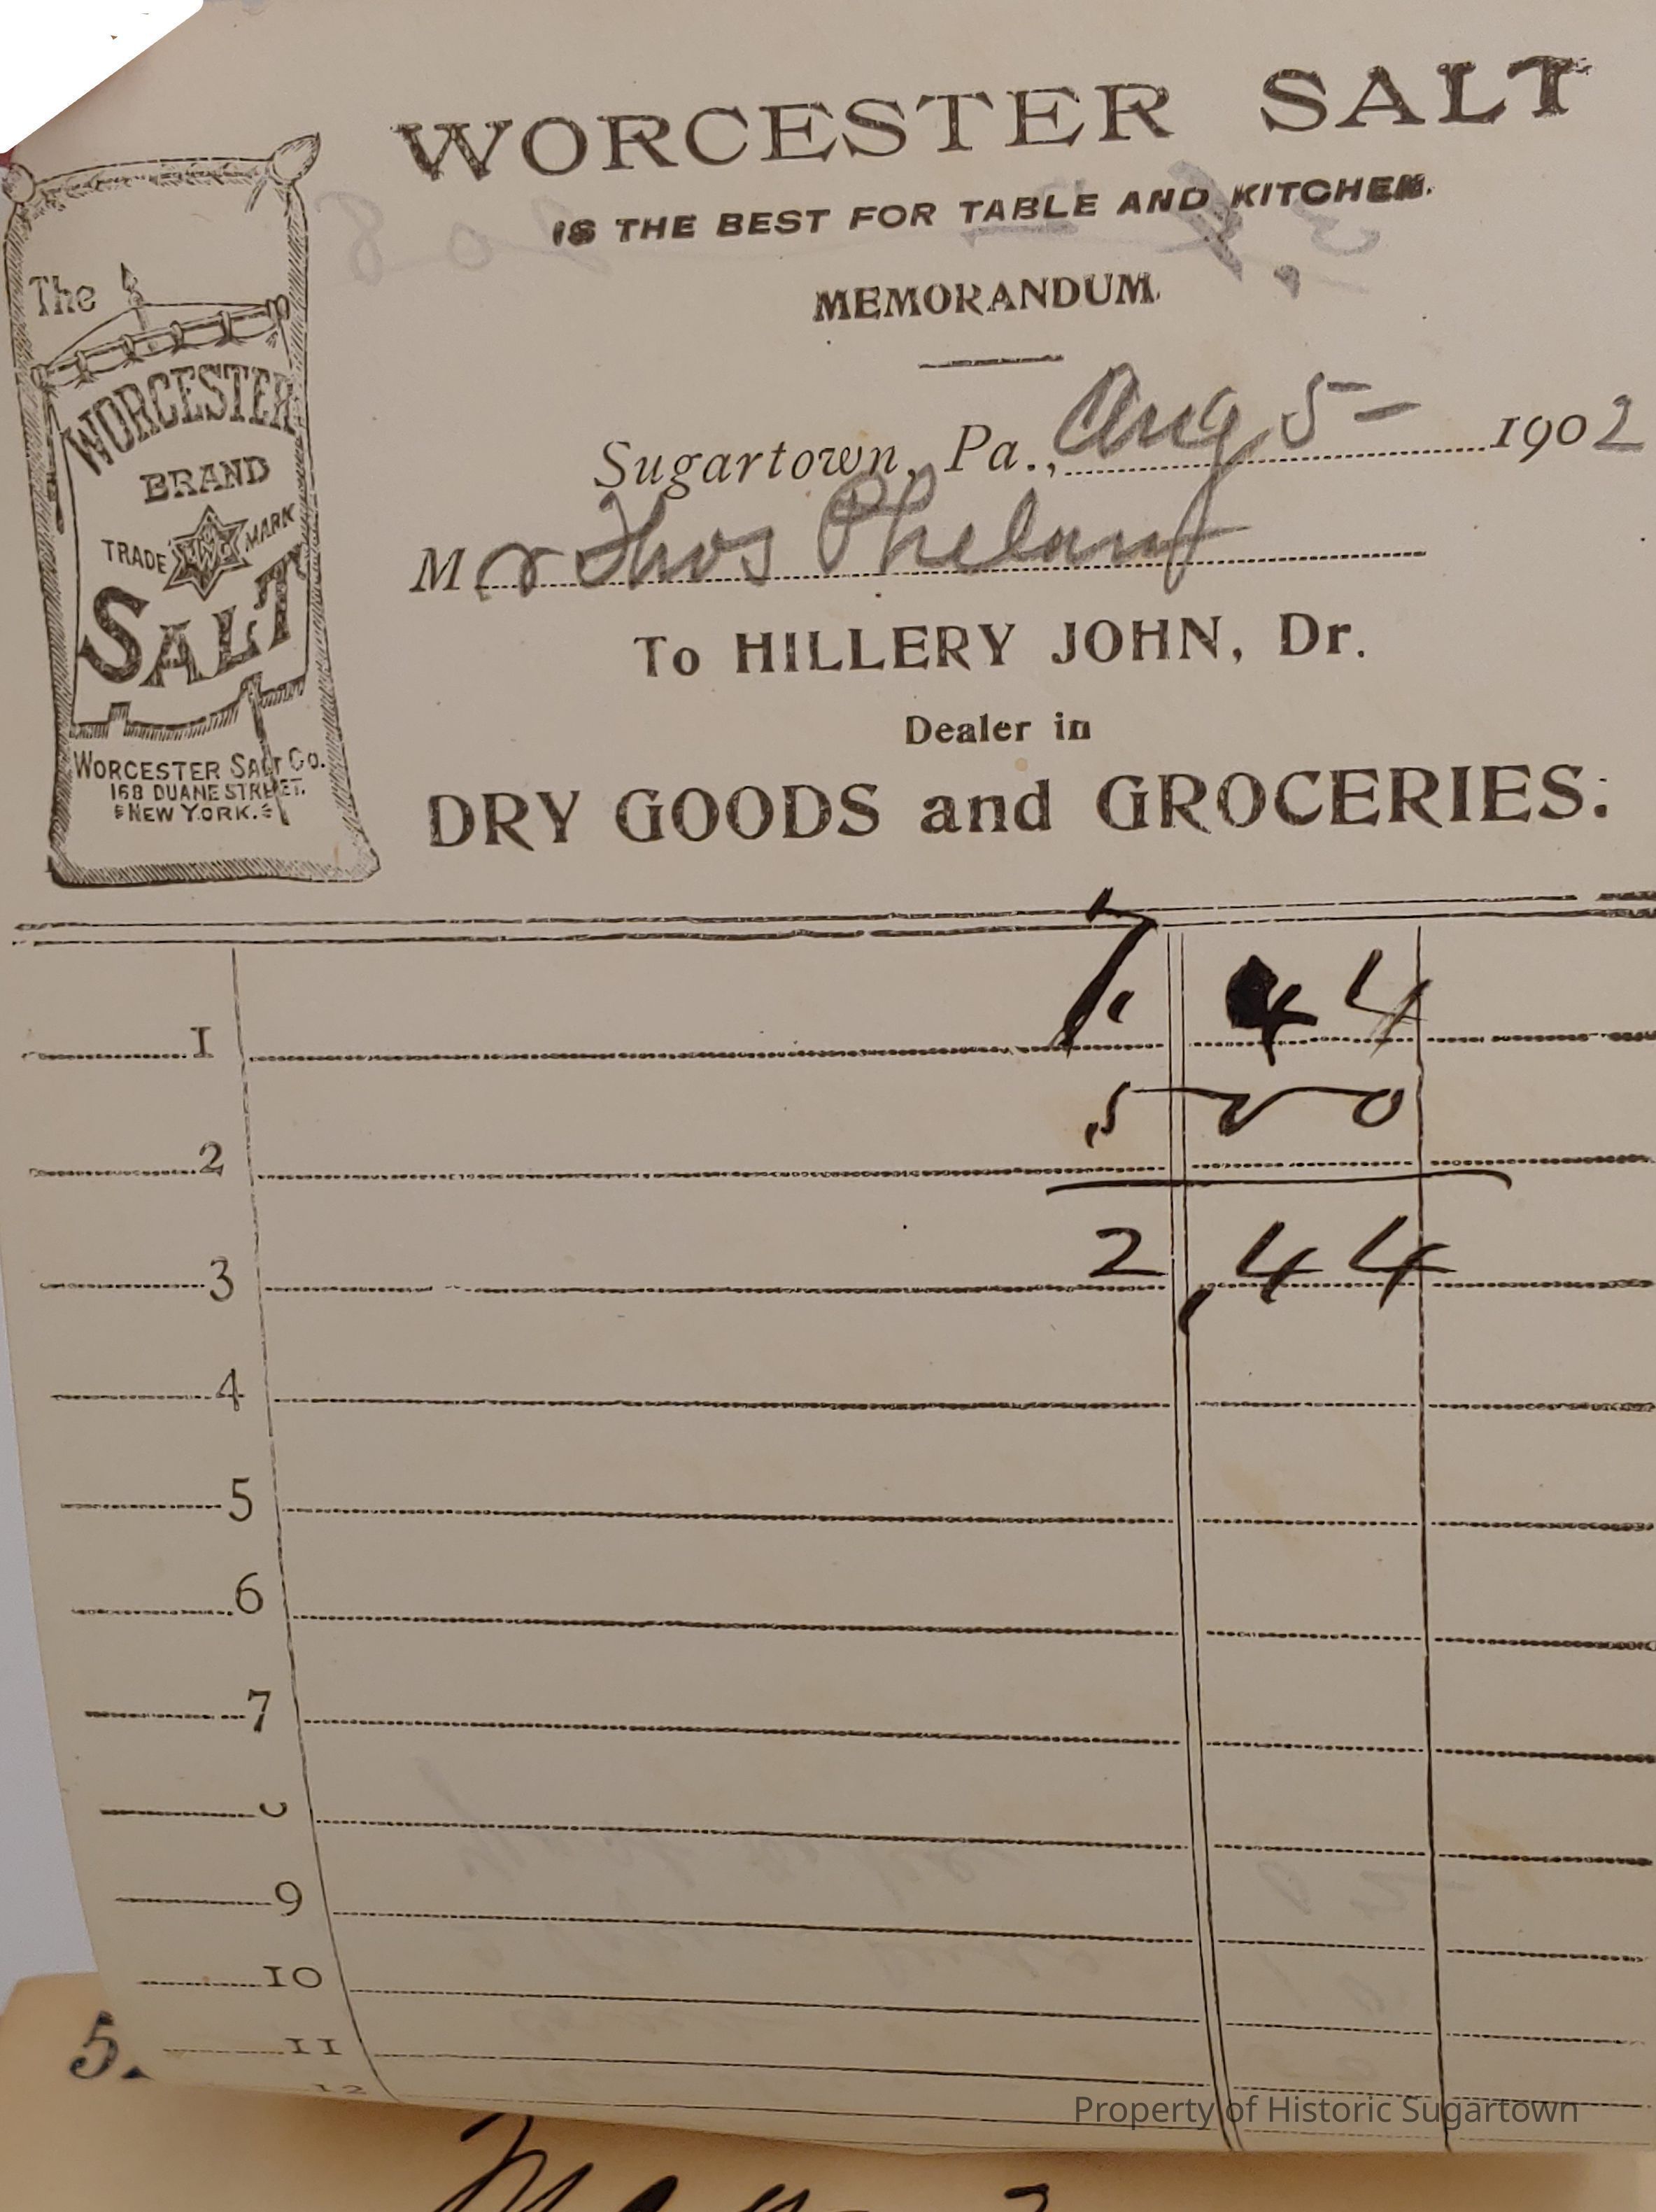 WORCESTER SALT
IS THE BEST FOR TABLE AND KITCHEN.
MEMORANDUM.
The
WORCESTER
BRAND
TRADE MARK
SALT
WORCESTER SALT CO.
168 DUANE STREET.
NEW YORK.
Sugartown, Pa., Aug 5- 1902
Mr Thos Phelan
To HILLERY JOHN, Dr.
Dealer in
DRY GOODS and GROCERIES.
1 7. 44
2 5 00
3 2,44
4
5
6
7
9
10
11
12
5.
Property of Historic Sugartown